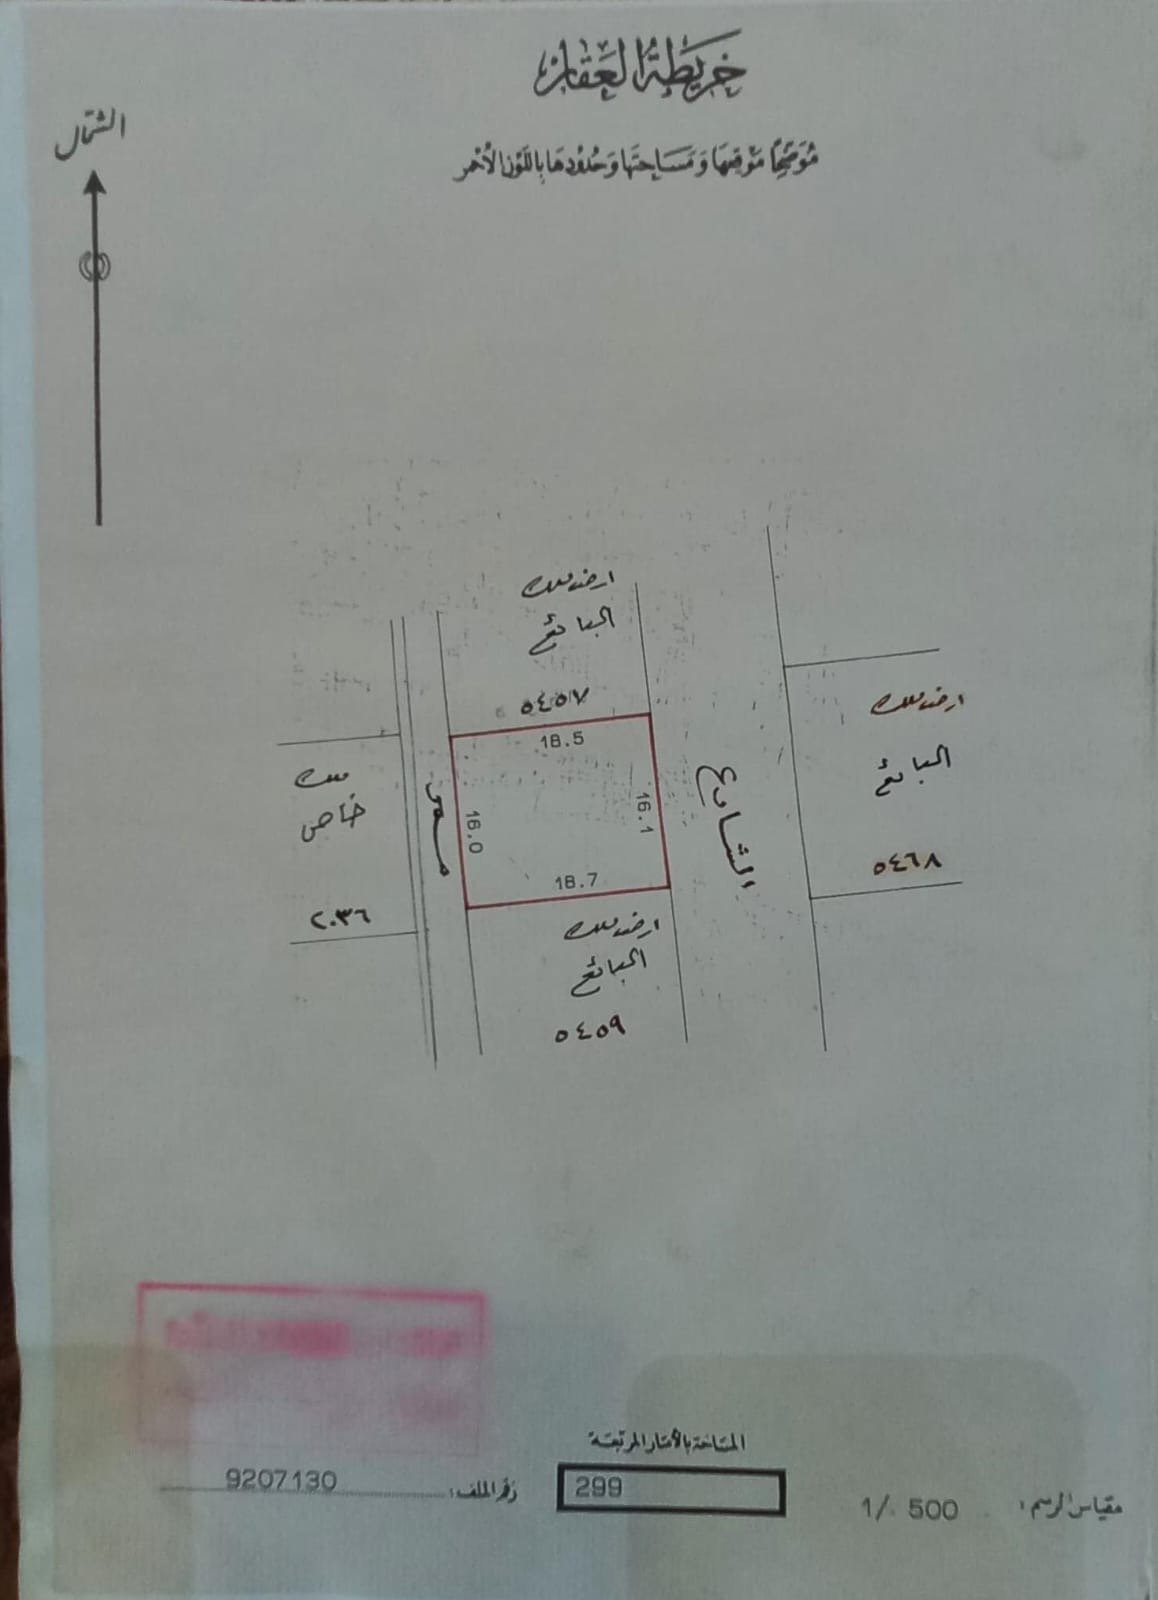 خريطة العقار
موضحا موقعها ومساحتها وحدودها باللون الأحمر
الشمال
ارض ملك
البائع
٥٤٥٧
18.5
16.1
16.0
18.7
ارض ملك
البائع
٥٤٥٩
الشارع
ممر
ملك
خاص
٢٠٣٦
ارض ملك
البائع
٥٤٦٨
المساحة بالأمتار المربعة
299
مقياس الرسم: 1/ 500
رقم الملف: 9207130